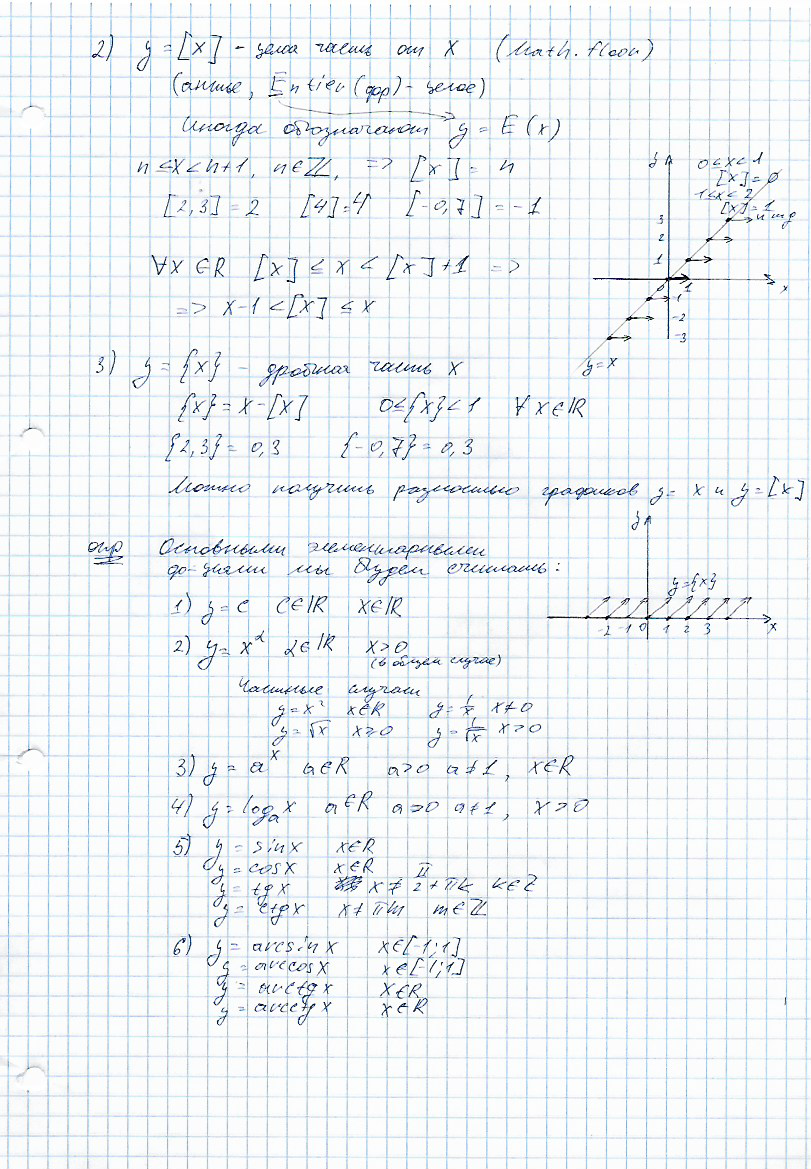 2) y = [x] - целая часть от x (Math.floor)
(антье, Entier (фр) - целое)
Иногда обозначают y = E(x)
n ≤ x < n+1, n∈ℤ, => [x] = n
[2,3] = 2 [4] = 4 [-0,7] = -1
∀x∈R [x] ≤ x < [x]+1 =>
=> x-1 < [x] ≤ x
y
0 ≤ x < 1
[x] = 0
1 ≤ x < 2
[x] = 1
и т д
3
2
1
0 1 x
-1
-2
-3
y = x
3) y = {x} - дробная часть x
{x} = x - [x] 0 ≤ {x} < 1 ∀x∈ℝ
{2,3} = 0,3 {-0,7} = 0,3
Можно получить разностью графиков y = x и y = [x]
y
y = {x}
-2 -1 0 1 2 3 x
опр Основными элементарными
ф-циями мы будем считать:
1) y = c c∈ℝ x∈ℝ
2) y = x^α α∈ℝ x>0
(в общем случае)
Частные случаи
y = x² x∈R y = 1/x x≠0
y = √x x≥0 y = 1/√x x>0
3) y = a^x a∈R a>0 a≠1, x∈R
4) y = log_a x a∈R a>0 a≠1, x>0
5) y = sin x x∈R
y = cos x x∈R
y = tg x x ≠ π/2 + πk k∈ℤ
y = ctg x x ≠ πm m∈ℤ
6) y = arcsin x x∈[-1;1]
y = arccos x x∈[-1;1]
y = arctg x x∈R
y = arcctg x x∈R